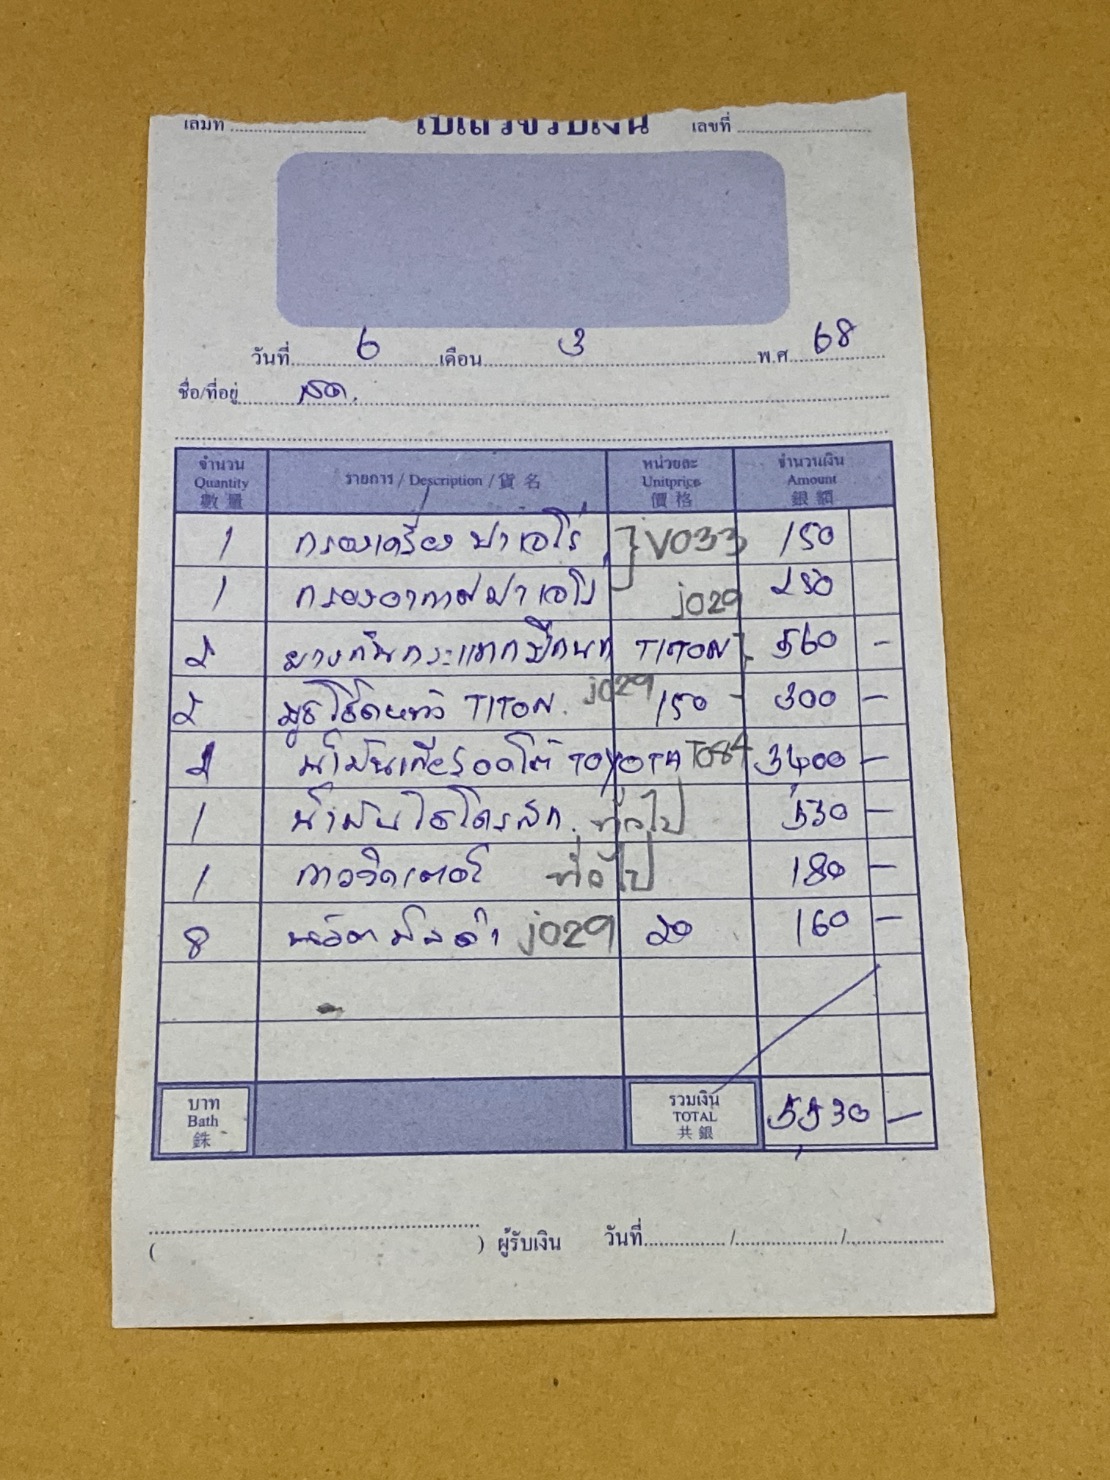 เล่มที่ ใบเสร็จรับเงิน เลขที่
วันที่ 6 เดือน 3 พ.ศ. 68
ชื่อ/ที่อยู่ สด.
จำนวน Quantity 數量 รายการ / Description / 貨名 หน่วยละ Unitprice 價格 จำนวนเงิน Amount 銀額
1 กรองเครื่อง ปาเจโร่ } V033 150
1 กรองอากาศปาเจโร่ j029 250
2 ยางกันกระแทกปีกนก TITON 560 -
2 บูชโช๊คหน้า TITON. j029 150 - 300 -
2 น้ำมันเกียร์ออโต้ TOYOTA T084 3400 -
1 น้ำมันไฮโดรลิก ทั่วไป 530 -
1 กาววิดเตอร์ ทั่วไป 180 -
8 น๊อต j029 20 160 -
บาท Bath 銖 รวมเงิน TOTAL 共銀 5530 -
( ) ผู้รับเงิน วันที่ / /